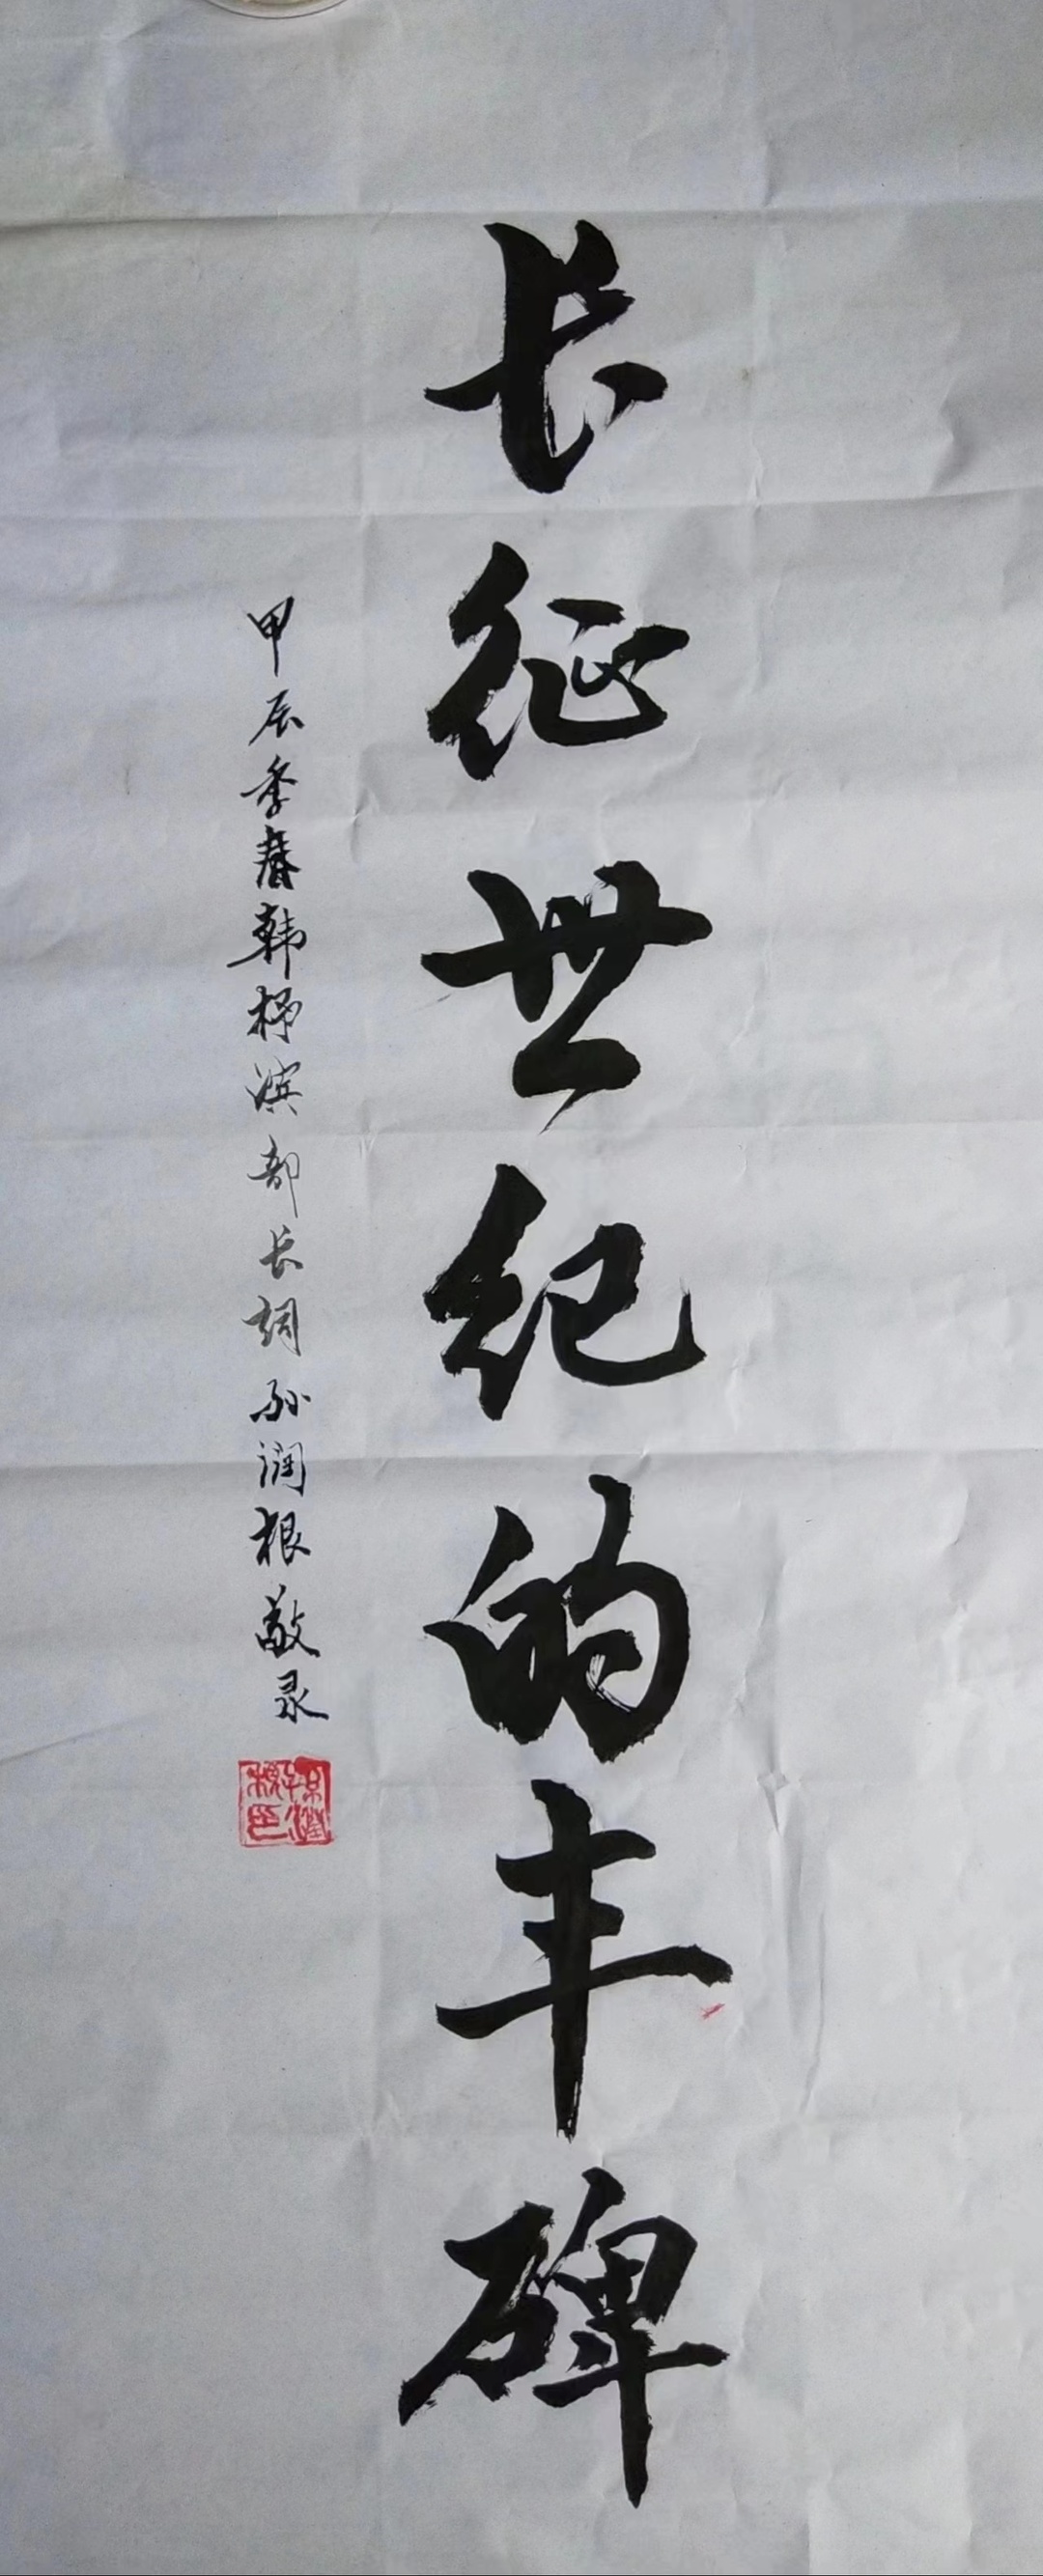 长征世纪的丰碑
甲辰季春韩杼滨部长词孙润根敬录
孙润根印